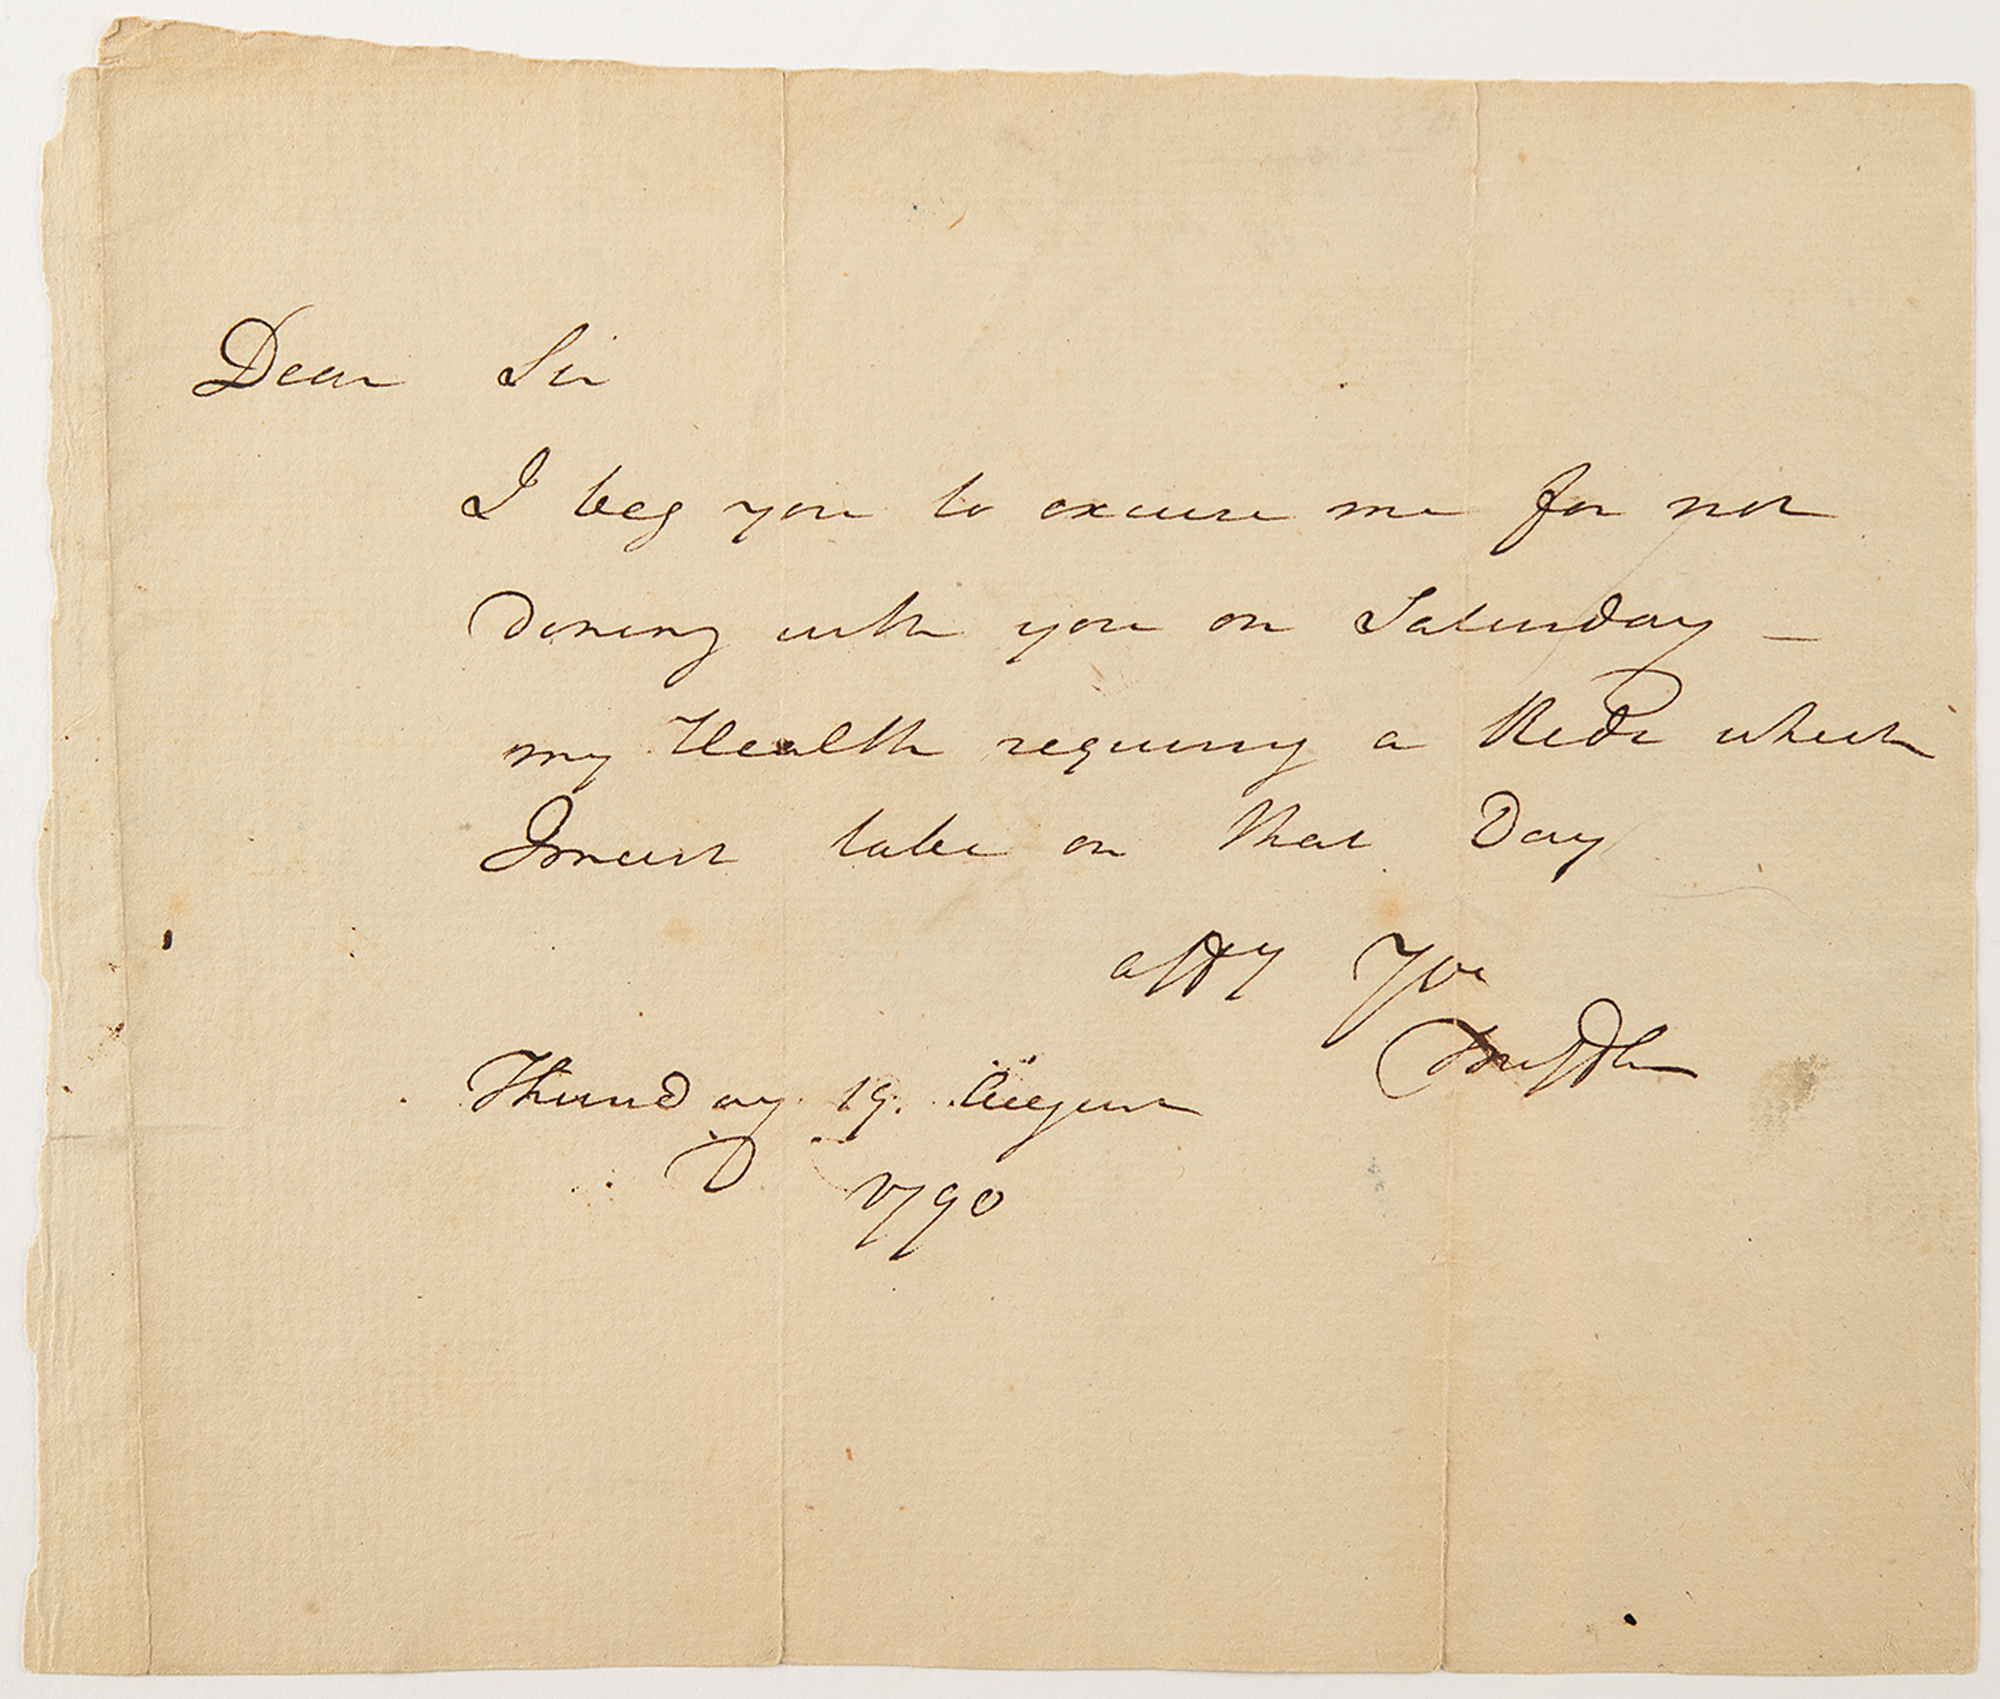 Dear Sir
I beg you to excuse me for not
Dining with you on Saturday —
my Health requiring a Ride which
I must take on that Day
affly Yrs
Thursday 19. August
1790